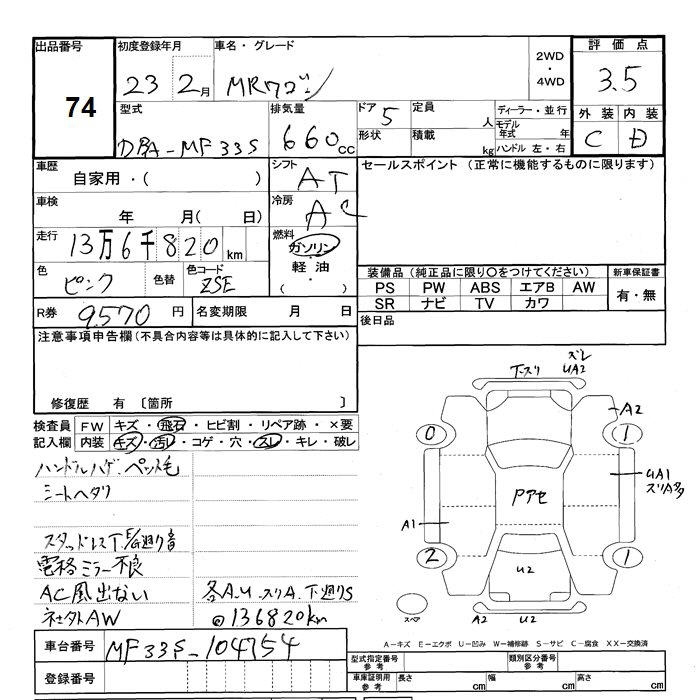 出品番号 74
初度登録年月 23 2月
車名・グレード MRワゴン
2WD・4WD
評価点 3.5
外装 C 内装 D
型式 DBA-MF33S
排気量 660cc
ドア 5
形状
定員 人
積載 kg
ディーラー・並行
モデル年式 年
ハンドル 左・右
車歴 自家用・( )
シフト AT
セールスポイント (正常に機能するものに限ります)
車検 年 月( 日)
冷房 AC
走行 13万6千820km
燃料 ガソリン・軽油・( )
色 ピンク 色替 色コード ZSE
装備品 (純正品に限り○をつけてください)
新車保証書
PS PW ABS エアB AW
有・無
SR ナビ TV カワ
R券 9570円
名変期限 月 日
後日品
注意事項申告欄(不具合内容等は具体的に記入して下さい)
修復歴 有 〔箇所 〕
検査員記入欄
FW キズ・飛石・ヒビ割・リペア跡・×要
内装 キズ・汚れ・コゲ・穴・スレ・キレ・破レ
ハンドルハゲ.ペット毛
シートヘタリ
スタッドレスT.E/G廻り音
電格ミラー不良
AC風出ない
各A.U.スリA.下廻りS
社外AW
@136820km
下スリ
ズレ
UA2
A2
0
1
UA1
スリA多
Pアセ
A1
2
1
U2
スペア
A2 U2
A−キズ E−エクボ U−凹み W−補修跡 S−サビ C−腐食 XX−交換済
車台番号 MF33S-104754
登録番号
型式指定番号 参考
類別区分番号 参考
車庫証明用 参考
長さ cm 幅 cm 高さ cm